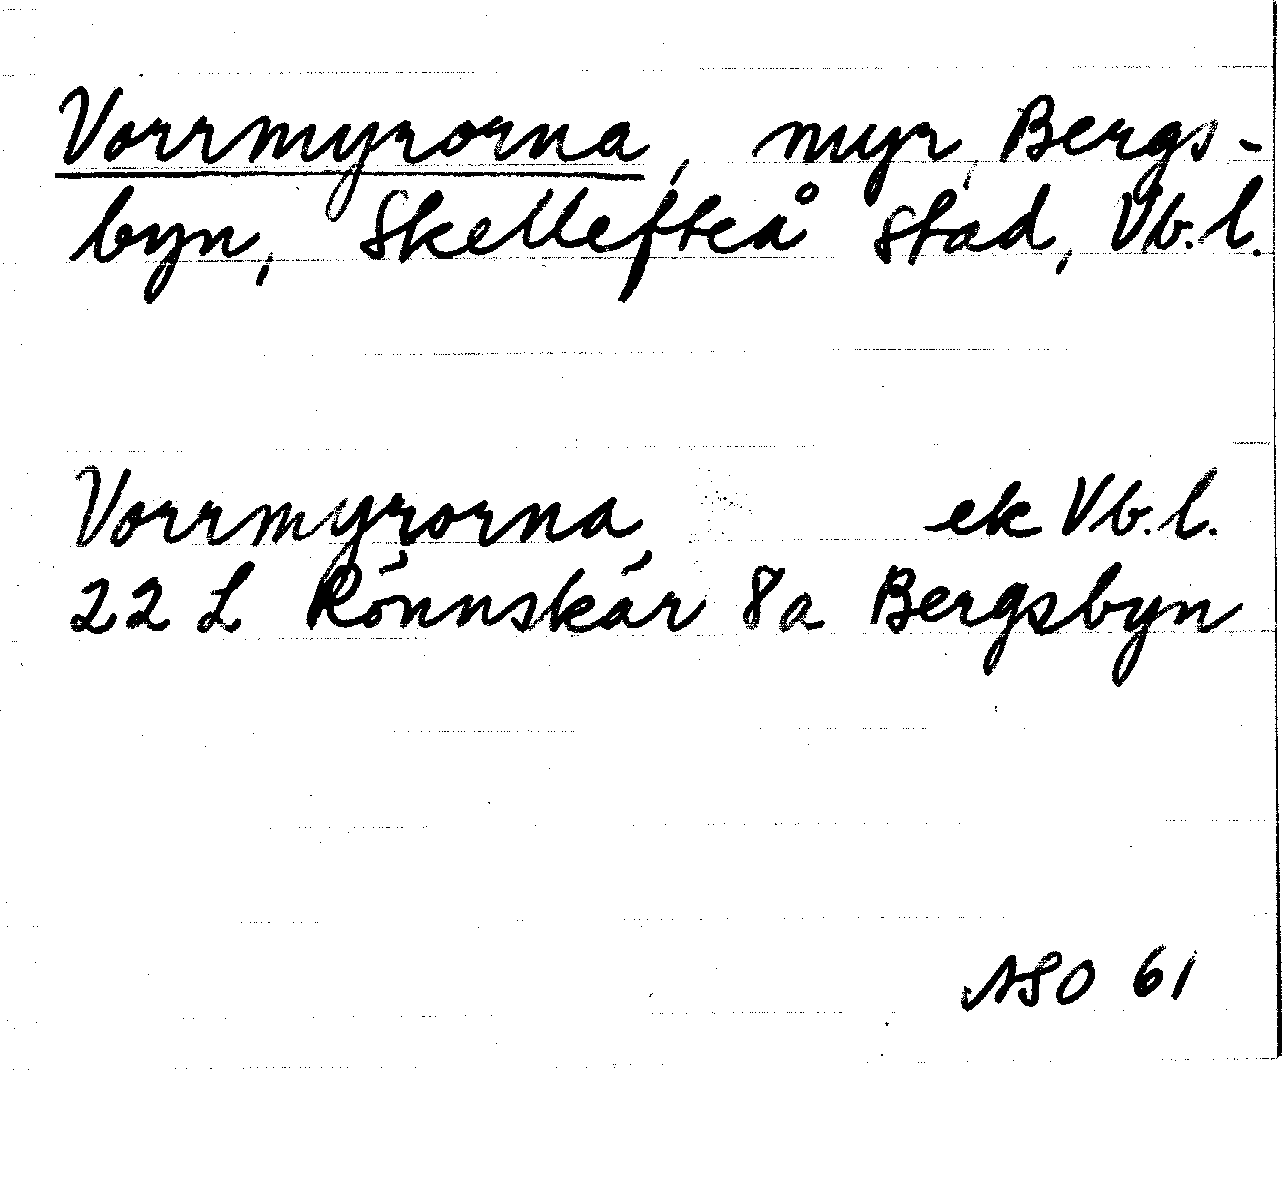 Vorrmyrorna, myr, Bergs-
byn, Skellefteå stad, Vb.l.
Vorrmyrorna ek Vb.l.
22 L Rönnskär 8a Bergsbyn
ASO 61